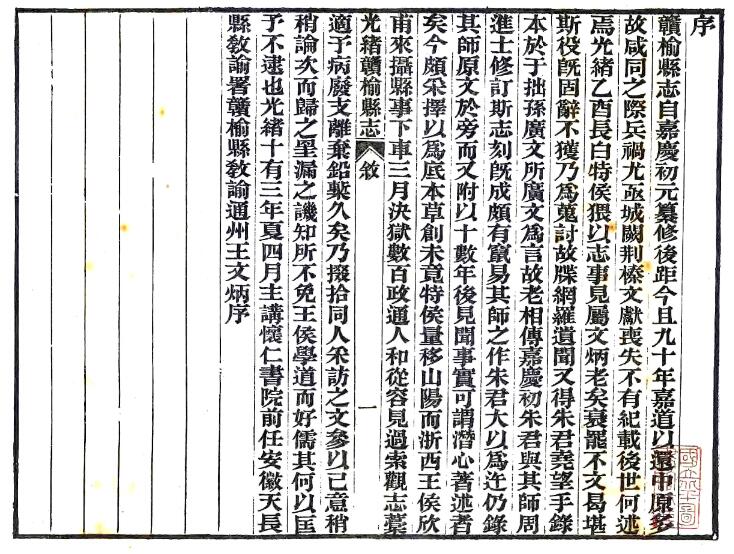 序
贛榆縣志自嘉慶初元纂修後距今且九十年嘉道以還中原多
故咸同之際兵禍尤亟城闕荆榛文獻喪失不有紀載後世何述
焉光緒乙酉長白特侯猥以志事見屬文炳老矣衰罷不文曷堪
斯役旣固辭不獲乃爲蒐討故牒網羅遺聞又得朱君堯望手錄
本於于拙孫廣文所廣文爲言故老相傳嘉慶初朱君與其師周
進士修訂斯志刻旣成頗有竄易其師之作朱君大以爲迕仍錄
其師原文於旁而又附以十數年後見聞事實可謂潛心著述者
矣今頗采擇以爲底本草創未竟特侯量移山陽而浙西王侯欣
甫來攝縣事下車三月決獄數百政通人和從容見過索觀志藁
光緒贛榆縣志 敘 一
適予病廢支離棄鉛槧久矣乃掇拾同人采訪之文參以己意稍
稍論次而歸之罣漏之譏知所不免王侯學道而好儒其何以匡
予不逮也光緒十有三年夏四月主講懷仁書院前任安徽天長
縣敎諭署贛榆縣敎諭通州王文炳序